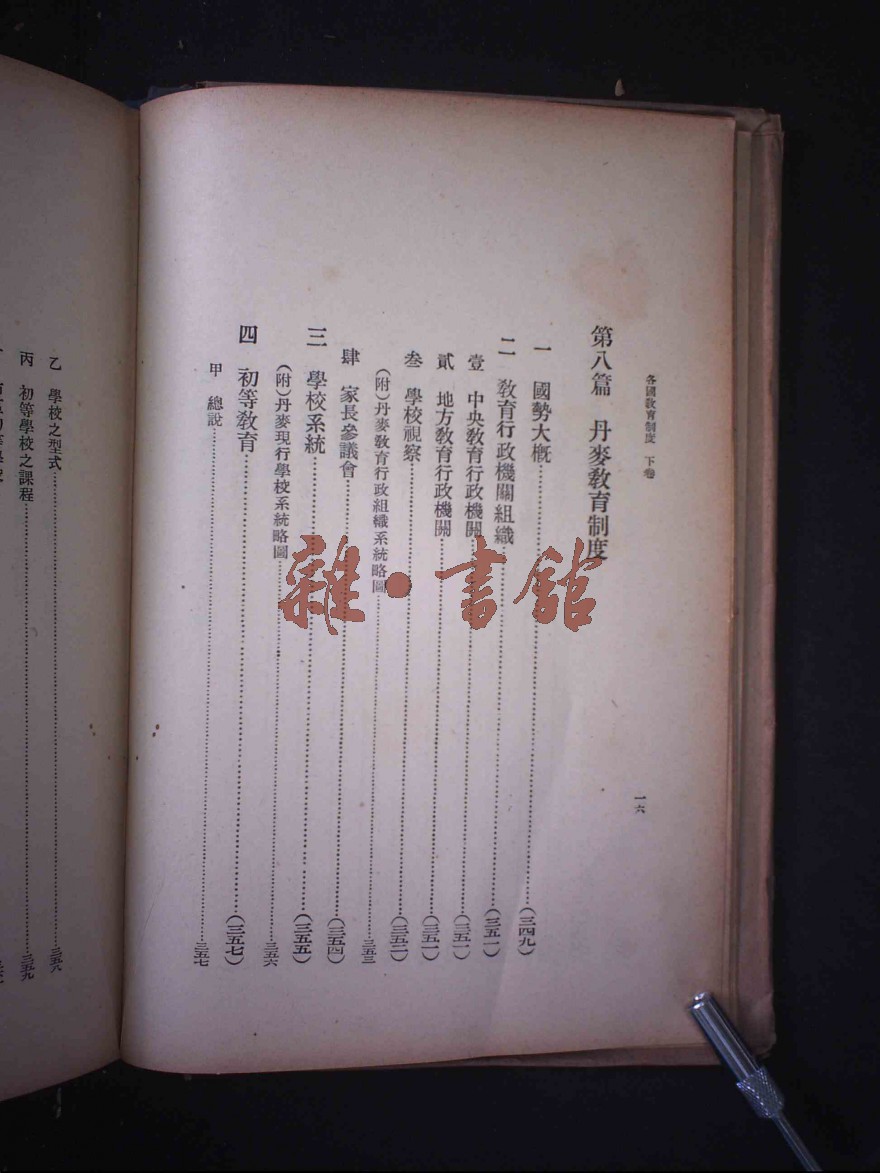 各國教育制度　下卷
一六
第八篇　丹麥教育制度
一　國勢大概……（三四九）
二　教育行政機關組織……（三五一）
壹　中央教育行政機關……（三五一）
貳　地方教育行政機關……（三五一）
叁　學校視察……（三五二）
（附）丹麥教育行政組織系統略圖……三五三
肆　家長參議會……（三五四）
三　學校系統……（三五五）
（附）丹麥現行學校系統略圖……三五六
四　初等教育……（三五七）
甲　總說……三五七
乙　學校之型式……三五八
丙　初等學校之課程……三五九
雜·書館